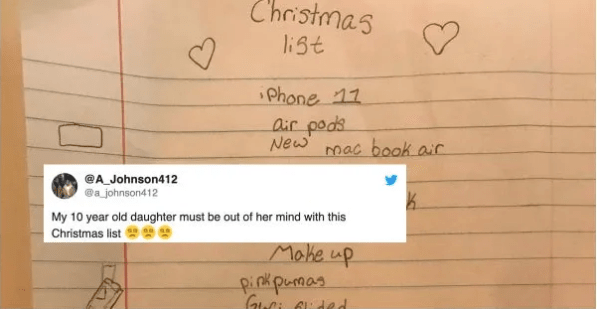 Christmas
list
iPhone 11
air pods
New mac book air
@A_Johnson412
@a_johnson412
My 10 year old daughter must be out of her mind with this
Christmas list
Make up
pink pumas